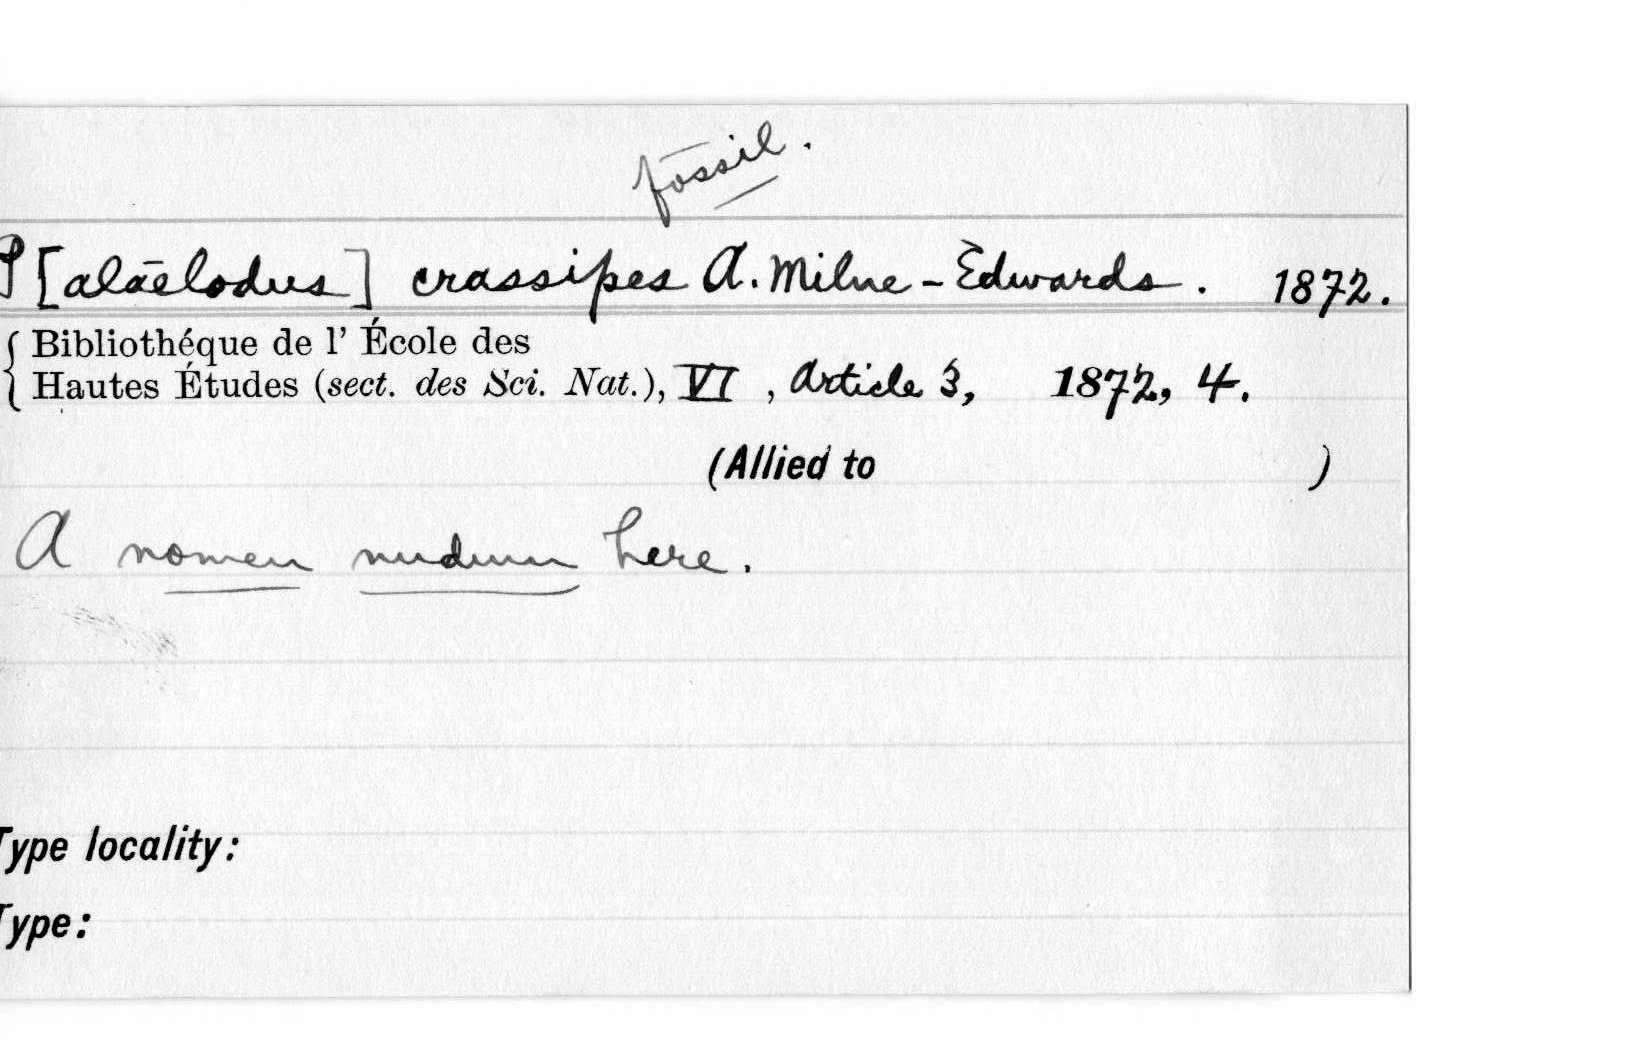 fossil.
P[alaelodus] crassipes A. Milne-Edwards. 1872.
Bibliothéque de l' École des
Hautes Études (sect. des Sci. Nat.), VI, Article 3, 1872, 4.
(Allied to )
A nomen nudum here.
Type locality:
Type: